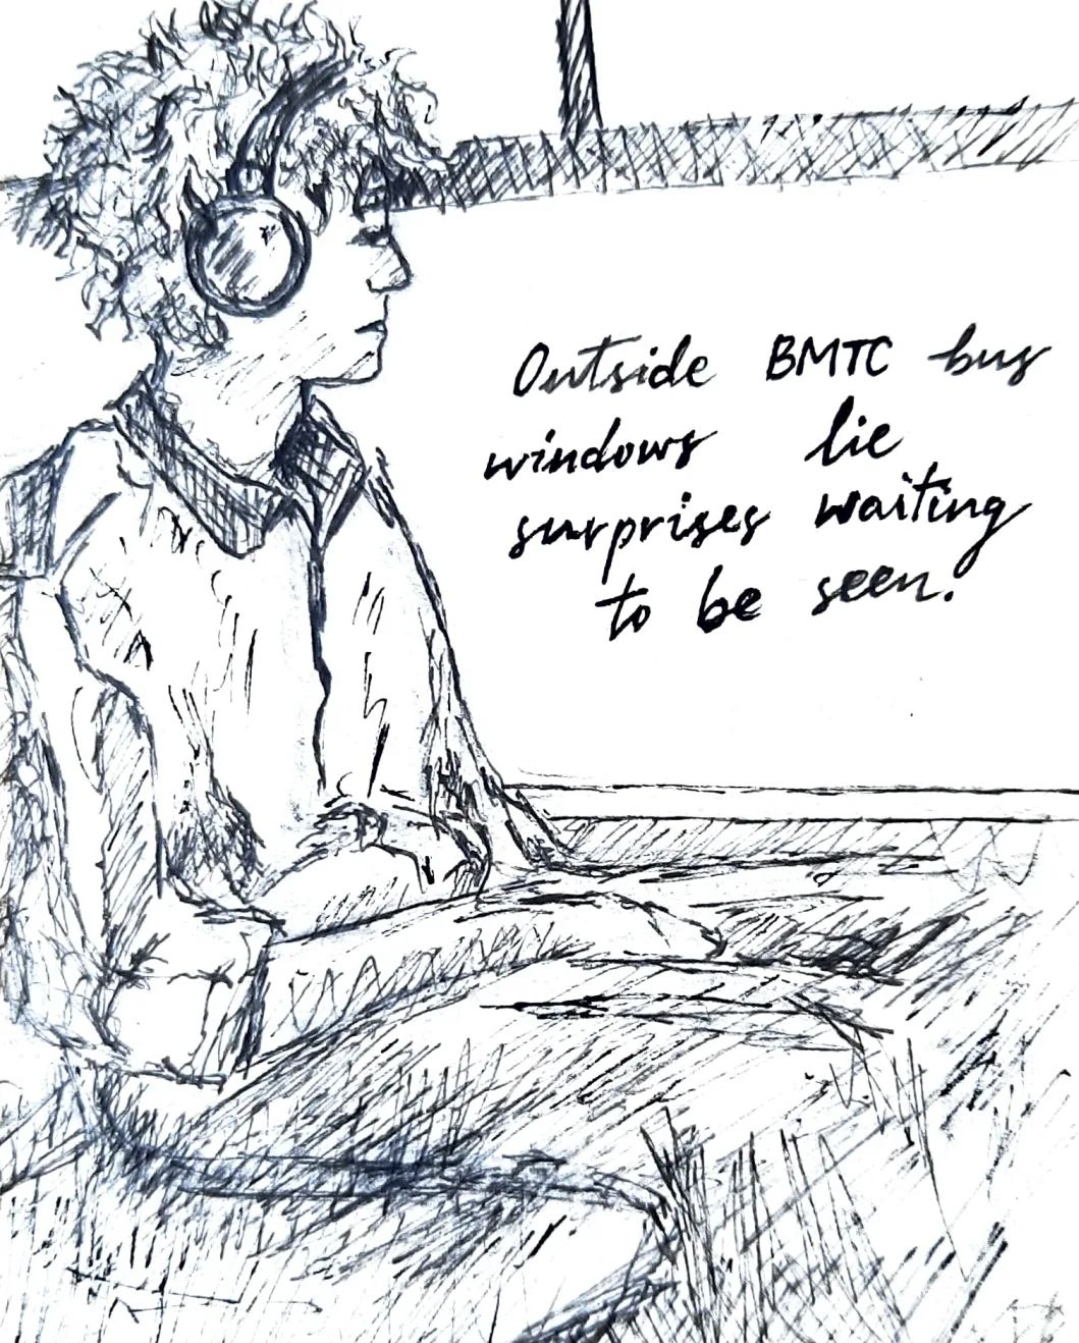 Outside BMTC bus
windows lie
surprises waiting
to be seen.